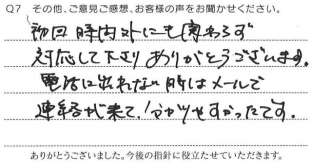 Q7 その他、ご意見ご感想、お客様の声をお聞かせください。
初回時間外にも関わらず
対応して下さりありがとうございます。
電話に出れない時はメールで
連絡が来て、分かりやすかったです。
ありがとうございました。今後の指針に役立たせていただきます。